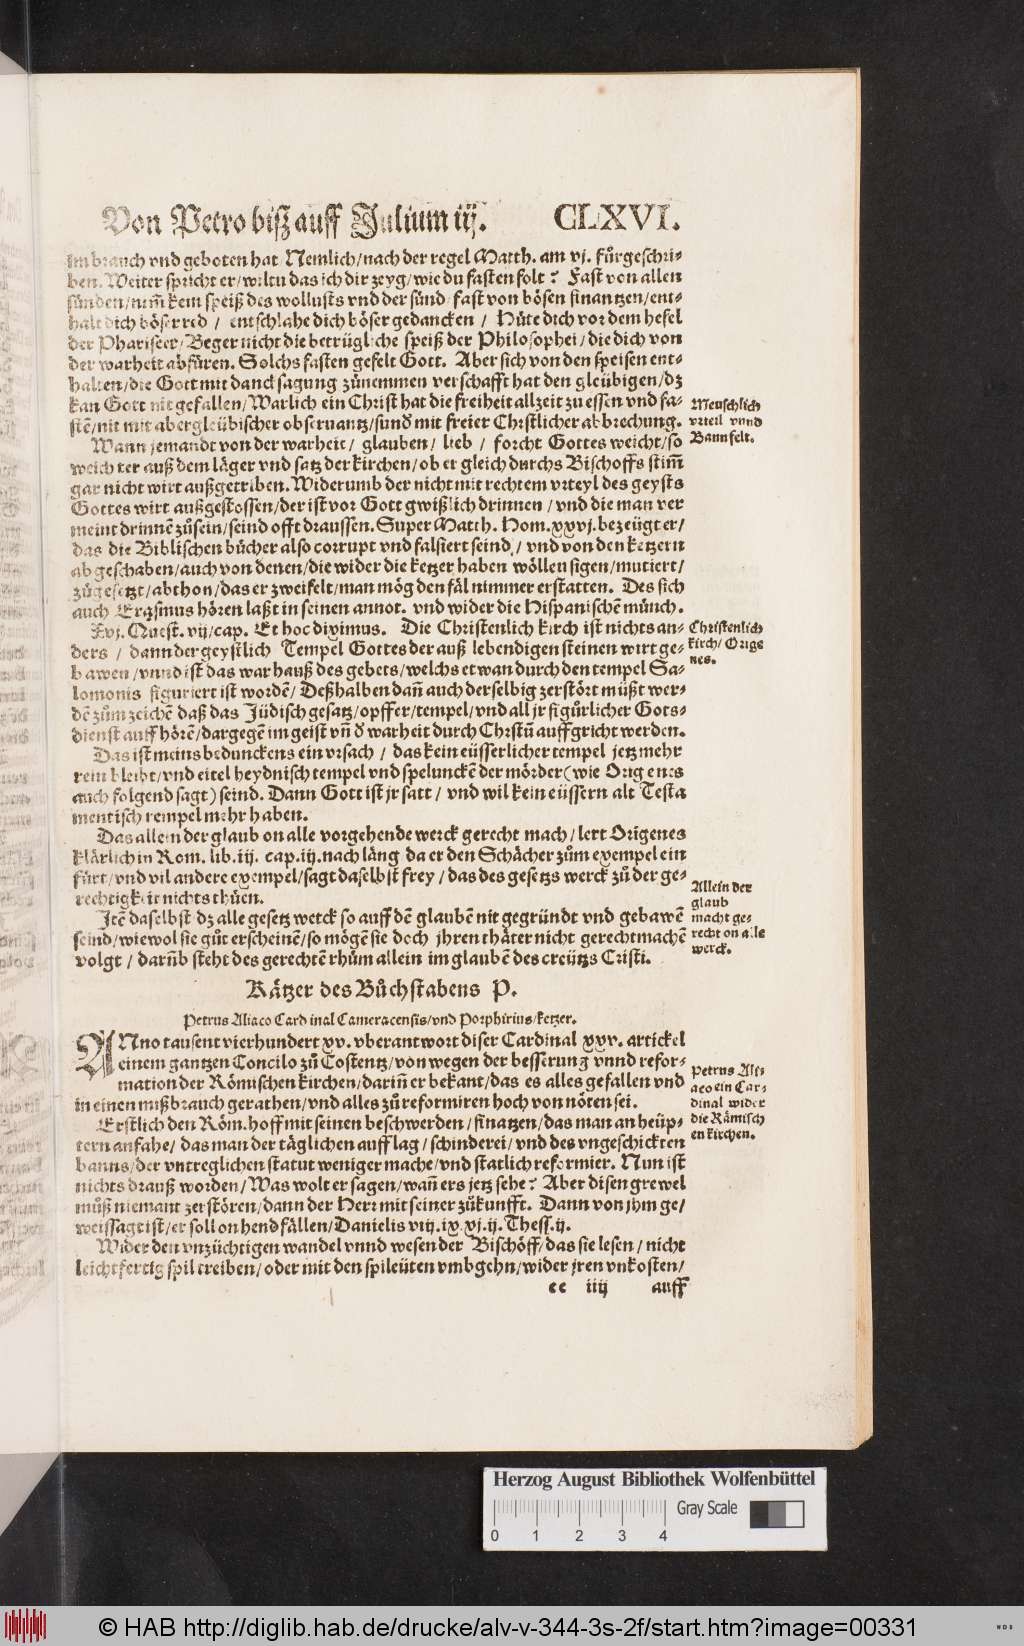 Von Petro biß auff Julium iij. CLXVI.
im brauch vnd geboten hat Nemlich/nach der regel Matth. am vj. fürgeschri-
ben. Weiter spricht er/wiltu das ich dir zeyg/wie du fasten solt? Fast von allen
sünden/nim̃ kein speiß des wollusts vnd der sünd/fast von bösen finantzen/ent-
halt dich böser red / entschlahe dich böser gedancken / Hüte dich vor dem hefel
der Phariseer/Beger nicht die betrügliche speiß der Philosophei/die dich von
der warheit abfüren. Solchs fasten gefelt Gott. Aber sich von den speisen ent-
halten/die Gott mit dancksagung zůnemmen verschafft hat den gleübigen/dz
kan Gott nit gefallen/Warlich ein Christ hat die freiheit allzeit zu essen vnd fa-
stẽ/nit mit abergleübischer obseruantz/sund̃ mit freier Christlicher abbrechung.
Menschlich
vrteil vnnd
Bann felt.
Wann jemandt von der warheit/ glauben/ lieb / forcht Gottes weicht/so
weicht er auß dem läger vnd satz der kirchen/ob er gleich durchs Bischoffs stim̃
gar nicht wirt außgetriben. Widerumb der nicht mit rechtem vrteyl des geysts
Gottes wirt außgestossen/der ist vor Gott gwißlich drinnen / vnd die man ver
meint drinnẽ zůsein/seind offt draussen. Super Matth. Hom. xxvj. bezeügt er/
das die Biblischen bücher also corrupt vnd falsiert seind / vnd von den ketzern
abgeschaben/auch von denen/die wider die ketzer haben wöllen sigen/mutiert/
zůgesetzt/abthon/das er zweifelt/man mög den fäl nimmer erstatten. Des sich
auch Erasmus hören laßt in seinen annot. vnd wider die Hispanischẽ münch.
Xvj. Quest. vij/cap. Et hoc diximus. Die Christenlich kirch ist nichts an-
ders / dann der geystlich Tempel Gottes der auß lebendigen steinen wirt ge-
bawen/vnnd ist das war hauß des gebets/welchs etwan durch den tempel Sa-
lomonis figuriert ist wordẽ/Deßhalben dañ auch derselbig zerstört müßt wer-
dẽ zům zeichẽ daß das Jüdisch gesatz/opffer/tempel/vnd all jr figürlicher Gots-
dienst auff hörẽ/dargegẽ im geist vñ d̃ warheit durch Chrstũ auffgricht werden.
Christenlich
kirch/ Orige
nes.
Das ist meins bedunckens ein vrsach / das kein eüsserlicher tempel jetz mehr
rein bleibt/vnd eitel heydnisch tempel vnd speluncke̅ der mörder (wie Origenes
auch folgend sagt) seind. Dann Gott ist jr satt / vnd wil kein eüssern alt Testa
mentisch tempel mehr haben.
Das allein der glaub on alle vorgehende werck gerecht mach/lert Origenes
klärlich in Rom. lib. iij. cap. iij. nach läng/da er den Schächer zům exempel ein
fürt/vnd vil andere exempel/sagt daselbst frey / das des gesetzs werck zů der ge-
rechtigkeit nichts thüen.
Allein der
glaub
macht ge-
recht on alle
werck.
Jtẽ daselbst dz alle gesetz werck so auff dẽ glaubẽ nit gegründt vnd gebawẽ
seind/wiewol sie gůt erscheinẽ/so mögẽ sie doch jhren thäter nicht gerecht machẽ
volgt / darũb steht des gerechtẽ rhům allein im glaubẽ des creützs Cristi.
Kätzer des Bůchstabens P.
Petrus Aliaco Cardinal Cameracensis/vnd Porphirius/ketzer.
ANno tausent vierhundert xv. vberantwort diser Cardinal xxv. artickel
einem gantzen Concilo zů Costentz/von wegen der besserung vnnd refor-
mation der Römischen kirchen/dariñ er bekant/das es alles gefallen vnd
in einen mißbrauch gerathen/vnd alles zů reformiren hoch von nöten sei.
Petrus Ali-
aco ein Car-
dinal wider
die Rämisch
en kirchen.
Erstlich den Röm. hoff mit seinen beschwerden/finatzen/das man an heüp-
tern anfahe/das man der täglichen aufflag/schinderei/vnd des vngeschickten
banns/der vntreglichen statut weniger mache/vnd statlich reformier. Nun ist
nichts drauß worden/Was wolt er sagen/wañ ers jetz sehe? Aber disen grewel
můß niemant zerstören/dann der Herr mit seiner zůkunfft. Dann von jhm ge/
weissagt ist/er soll on hend fällen/Danielis viij. ix. xj. ij. Thess. ij.
Wider den vnzüchtigen wandel vnnd wesen der Bischöff/das sie lesen/nicht
leichtfertig spil treiben/oder mit den spileüten vmbgehn/wider jren vnkosten/
ee iiij auff
Herzog August Bibliothek Wolfenbüttel
Gray Scale
0 1 2 3 4
© HAB http://diglib.hab.de/drucke/alv-v-344-3s-2f/start.htm?image=00331